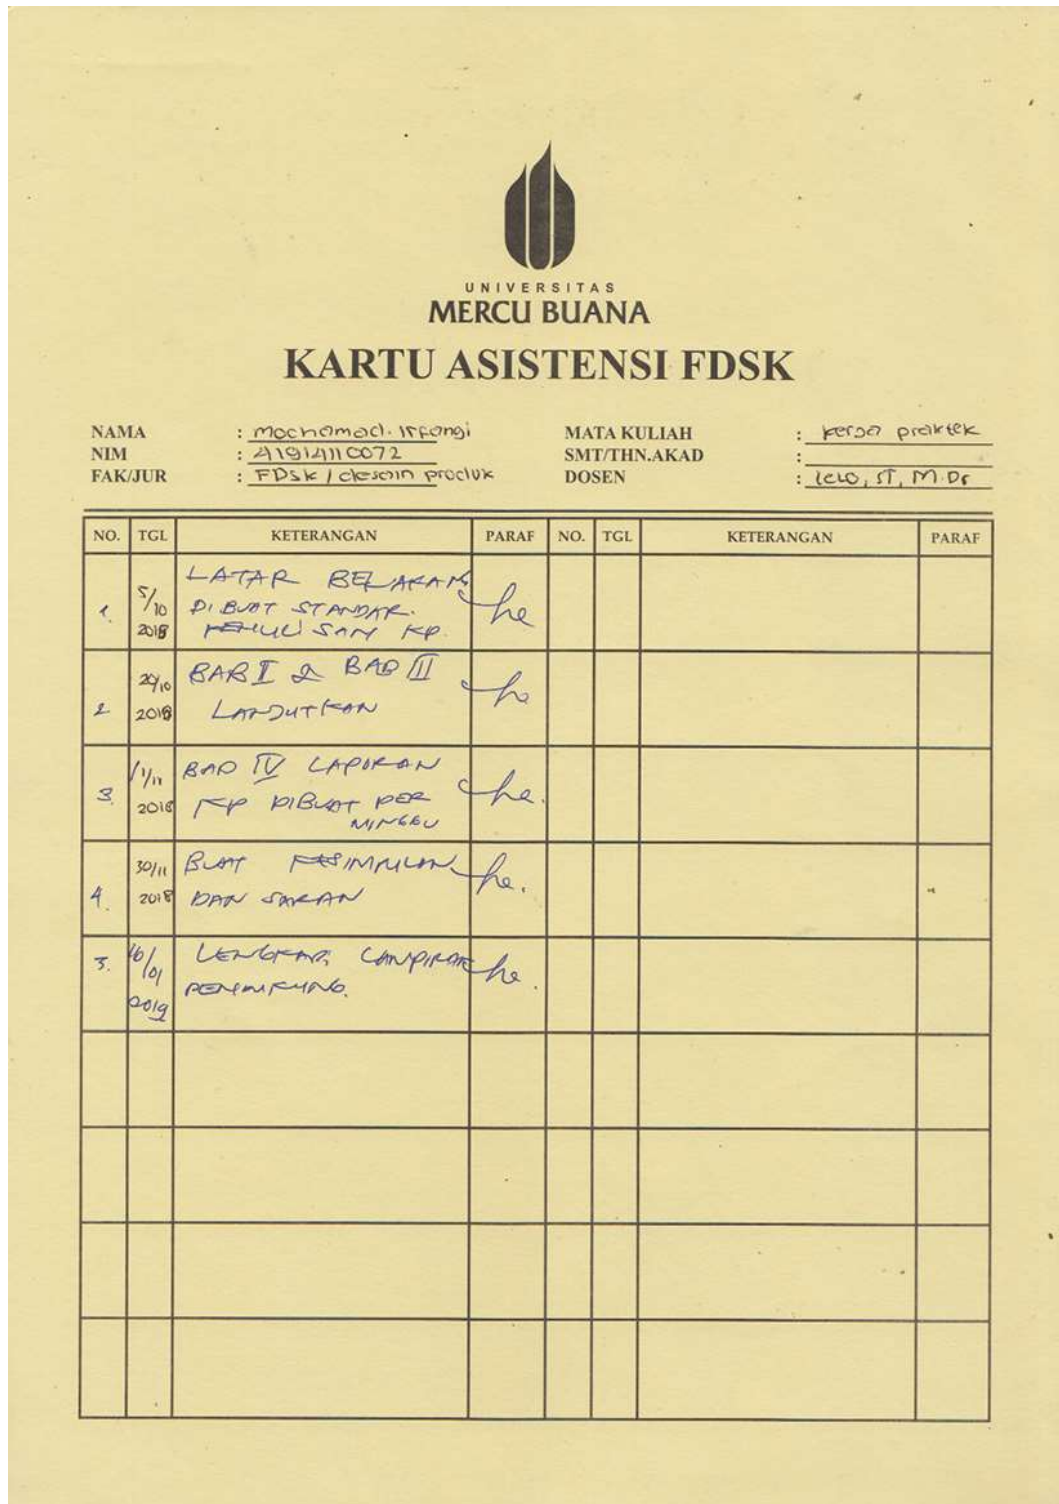 UNIVERSITAS
MERCU BUANA
KARTU ASISTENSI FDSK
NAMA : Mochamad. Irfangi
NIM : 41914110072
FAK/JUR : FDSK / desain produk
MATA KULIAH : kerja praktek
SMT/THN.AKAD :
DOSEN : Lelo, ST, M.Ds
NO. TGL KETERANGAN PARAF NO. TGL KETERANGAN PARAF
1. 5/10 2018 LATAR BELAKANG
DIBUAT STANDAR.
PENULISAN KP.
2 2018 BAB I & BAB III
LANJUTKAN
3. 2018 BAB IV LAPORAN
KP DIBUAT PER
MINGGU
4. 30/11 2018 BUAT KESIMPULAN
DAN SARAN
5. 16/01 2019 LENGKAPI LAMPIRAN
PENDUKUNG.